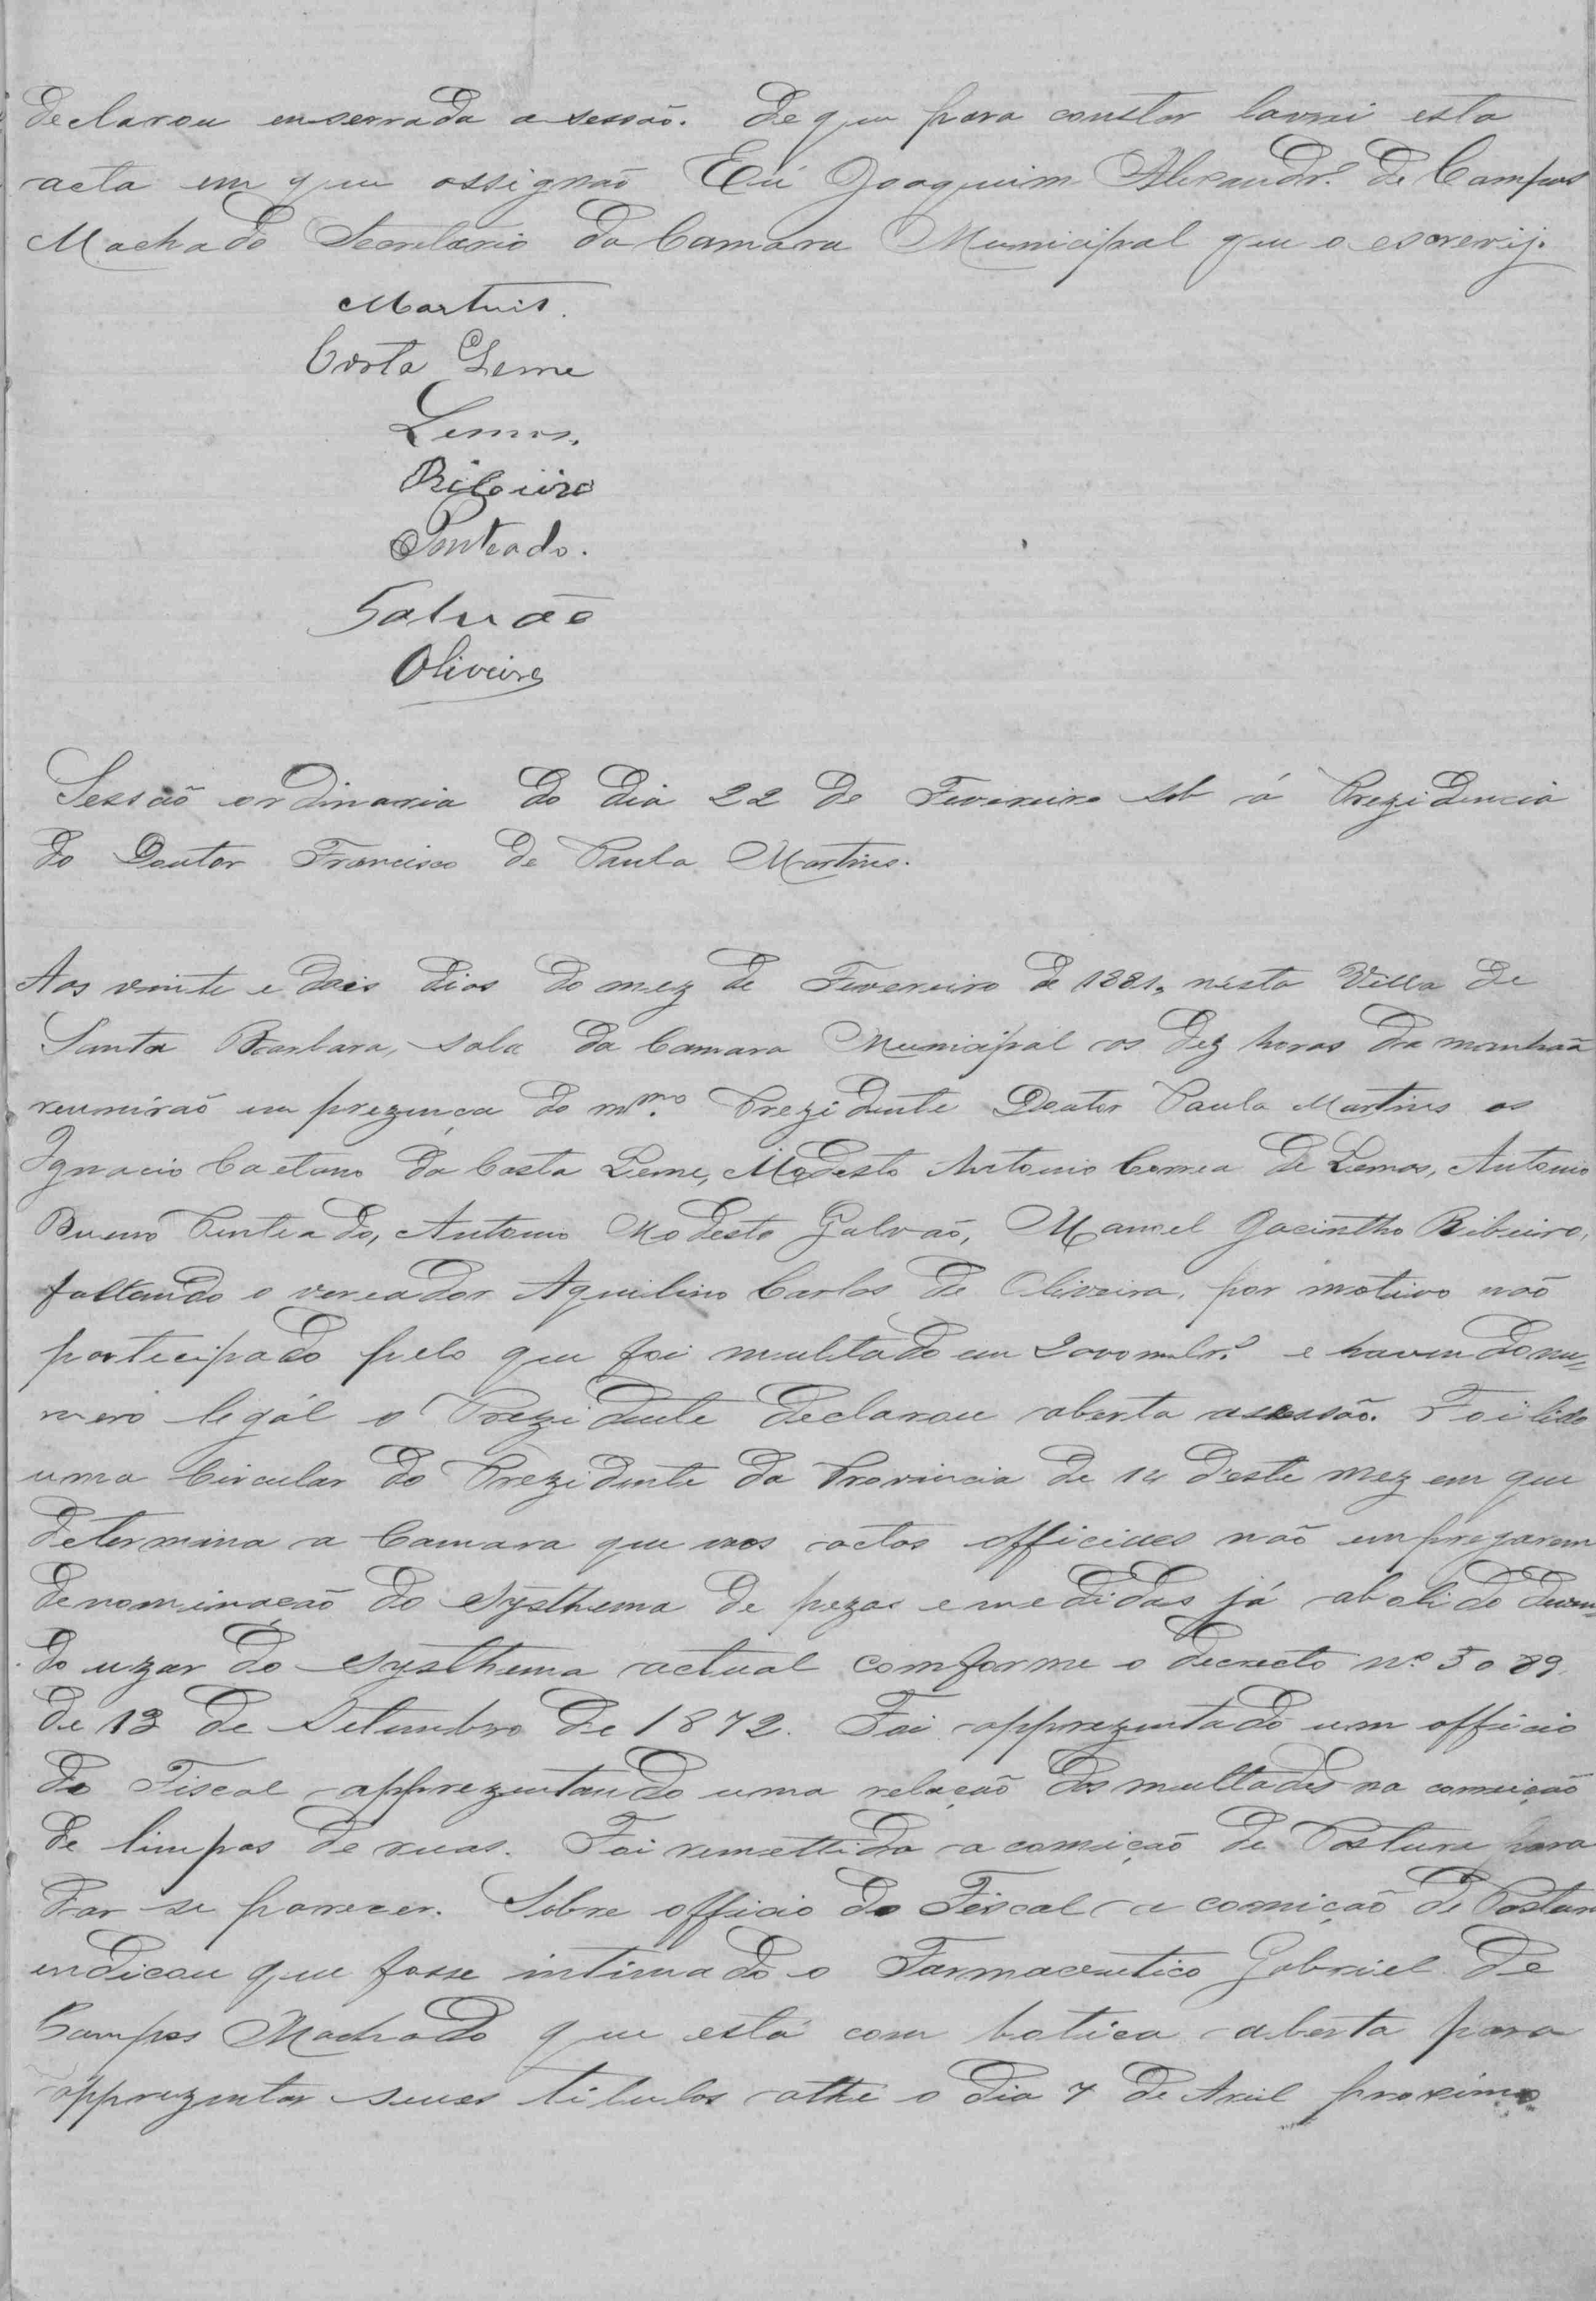 declarou enserrada a sessaõ. De que para constar lavrei esta
acta em que assignaõ Eu Joaquim Alexandr.e de Campos
Machado Secretario da Camara Municipal que o escrevij.
Martins.
Costa Leme
Lemos.
Ribeiro
Penteado.
Galvão
Oliveira
Sessaõ ordinaria do dia 22 de Fevereiro sob á Prezidencia
do Doutor Francisco de Paula Martins.
Aos vinte e dois dias do mez de Fevereiro de 1881, nesta Villa de
Santa Barbara, sala da Camara Municipal as dez horas da manhaã
reuniraõ em prezença do m.mo Prezidente Doutor Paula Martins os
Ignacio Caetano da Costa Leme, Modesto Antonio Correa de Lemos, Antonio
Bueno Penteado, Antonio Modesto Galvaõ, Manoel Jacintho Ribeiro,
faltando o vereador Aquilino Carlos de Oliveira, por motivo naõ
participado pelo que foi multado em e havendo nu=
mero legál o Prezidente declarou aberta a sessão. Foi lido
uma Circular do Prezidente da Provincia de 14 d'este mez em que
determina a Camara que nos actos officiaes naõ empregarem
denominaçaõ do systhema de pezos e medidas já abolido deven=
do uzar do systhema actual comforme o decrecto nº 5089
de 13 de Setembro de 1872. Foi apprezentado um officio
do Fiscal apprezentando uma relaçaõ dos multados na comiçaõ
de limpas de ruas. Foi remettida a comiçaõ de Postura para
dar se parecer. Sobre officio do Fiscal a comiçaõ de Postura
indicou que fosse intimado o Farmaceutico Gabriel de
Campos Machado que está com botica aberta para
apprezentar seues titulos athe o dia 7 de Avril proximo